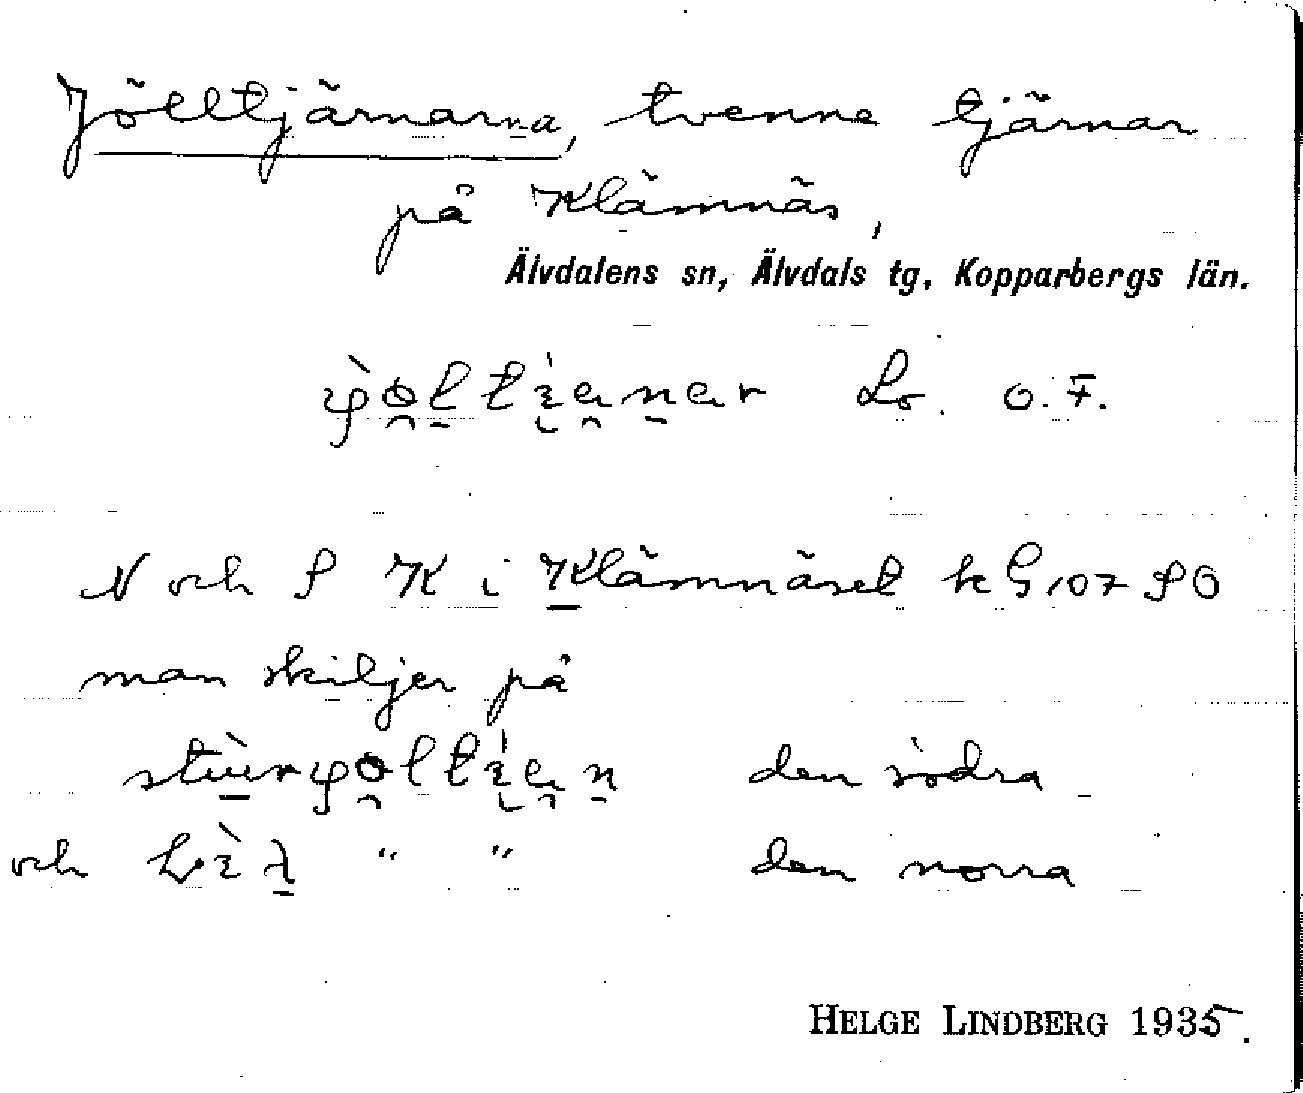 Jölltjärnarna, tvenne tjärnar
på Klämnäs,
Älvdalens sn, Älvdals tg, Kopparbergs län.
Lo. O.F.
N och S K i Klämnäset k G 107 SO
man skiljer på
den södra
och " " den norra
HELGE LINDBERG 1935.